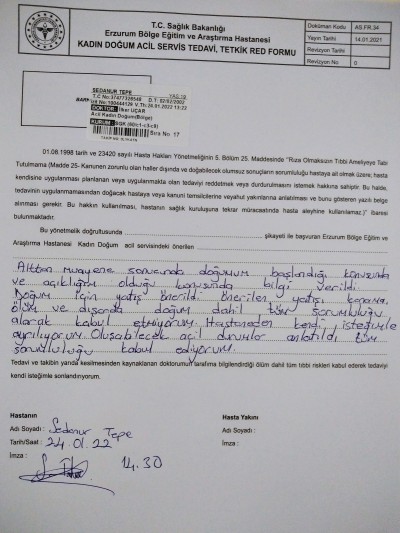 T.C. Sağlık Bakanlığı
Erzurum Bölge Eğitim ve Araştırma Hastanesi
KADIN DOĞUM ACİL SERVİS TEDAVİ, TETKİK RED FORMU
Doküman Kodu AS.FR.34
Yayın Tarihi 14.01.2021
Revizyon Tarihi
Revizyon No 0
SEDANUR TEPE
D.T: 02/02/2002
DOKTOR: İlker UÇAR
Acil Kadın Doğum(Bölge)
KURUM: SGK
Sıra No 17
01.08.1998 tarih ve 23420 sayılı Hasta Hakları Yönetmeliğinin 5. Bölüm 25. Maddesinde "Rıza Olmaksızın Tıbbi Ameliyeye Tabi
Tutulmama (Madde 25- Kanunen zorunlu olan haller dışında ve doğabilecek olumsuz sonuçların sorumluluğu hastaya ait olmak üzere; hasta
kendisine uygulanması planlanan veya uygulanmakta olan tedaviyi reddetmek veya durdurulmasını istemek hakkına sahiptir. Bu halde,
tedavinin uygulanmamasından doğacak sonuçların hastaya veya kanuni temsilcilerine veyahut yakınlarına anlatılması ve bunu gösteren yazılı belge
alınması gerekir. Bu hakkın kullanılması, hastanın sağlık kuruluşuna tekrar müracaatında hasta aleyhine kullanılamaz.)" ibaresi
bulunmaktadır.
Bu yönetmelik doğrultusunda şikayeti ile başvuran Erzurum Bölge Eğitim ve
Araştırma Hastanesi Kadın Doğum acil servisindeki önerilen
Alttan muayene sonucunda doğumun başlandığı konusunda
ve açıklığım olduğu konusunda bilgi verildi.
Doğum için yatış önerildi önerilen yatışı kanama,
ölüm ve dışarda doğum dahil tüm sorumluluğu
alarak kabul etmiyorum. Hastaneden kendi isteğimle
ayrılıyorum. Oluşabilecek acil durumlar anlatıldı tüm
sorumluluğu kabul ediyorum.
Tedavi ve takibin yarıda kesilmesinden kaynaklanan doktorumun tarafıma bilgilendirdiği ölüm dahil tüm tıbbi riskleri kabul ederek tedavyi
kendi isteğimle sonlandırıyorum.
Hastanın
Adı Soyadı : Sedanur Tepe
Tarih/Saat : 24 01.22
14.30
İmza :
Hasta Yakını
Adı Soyadı :
İmza :